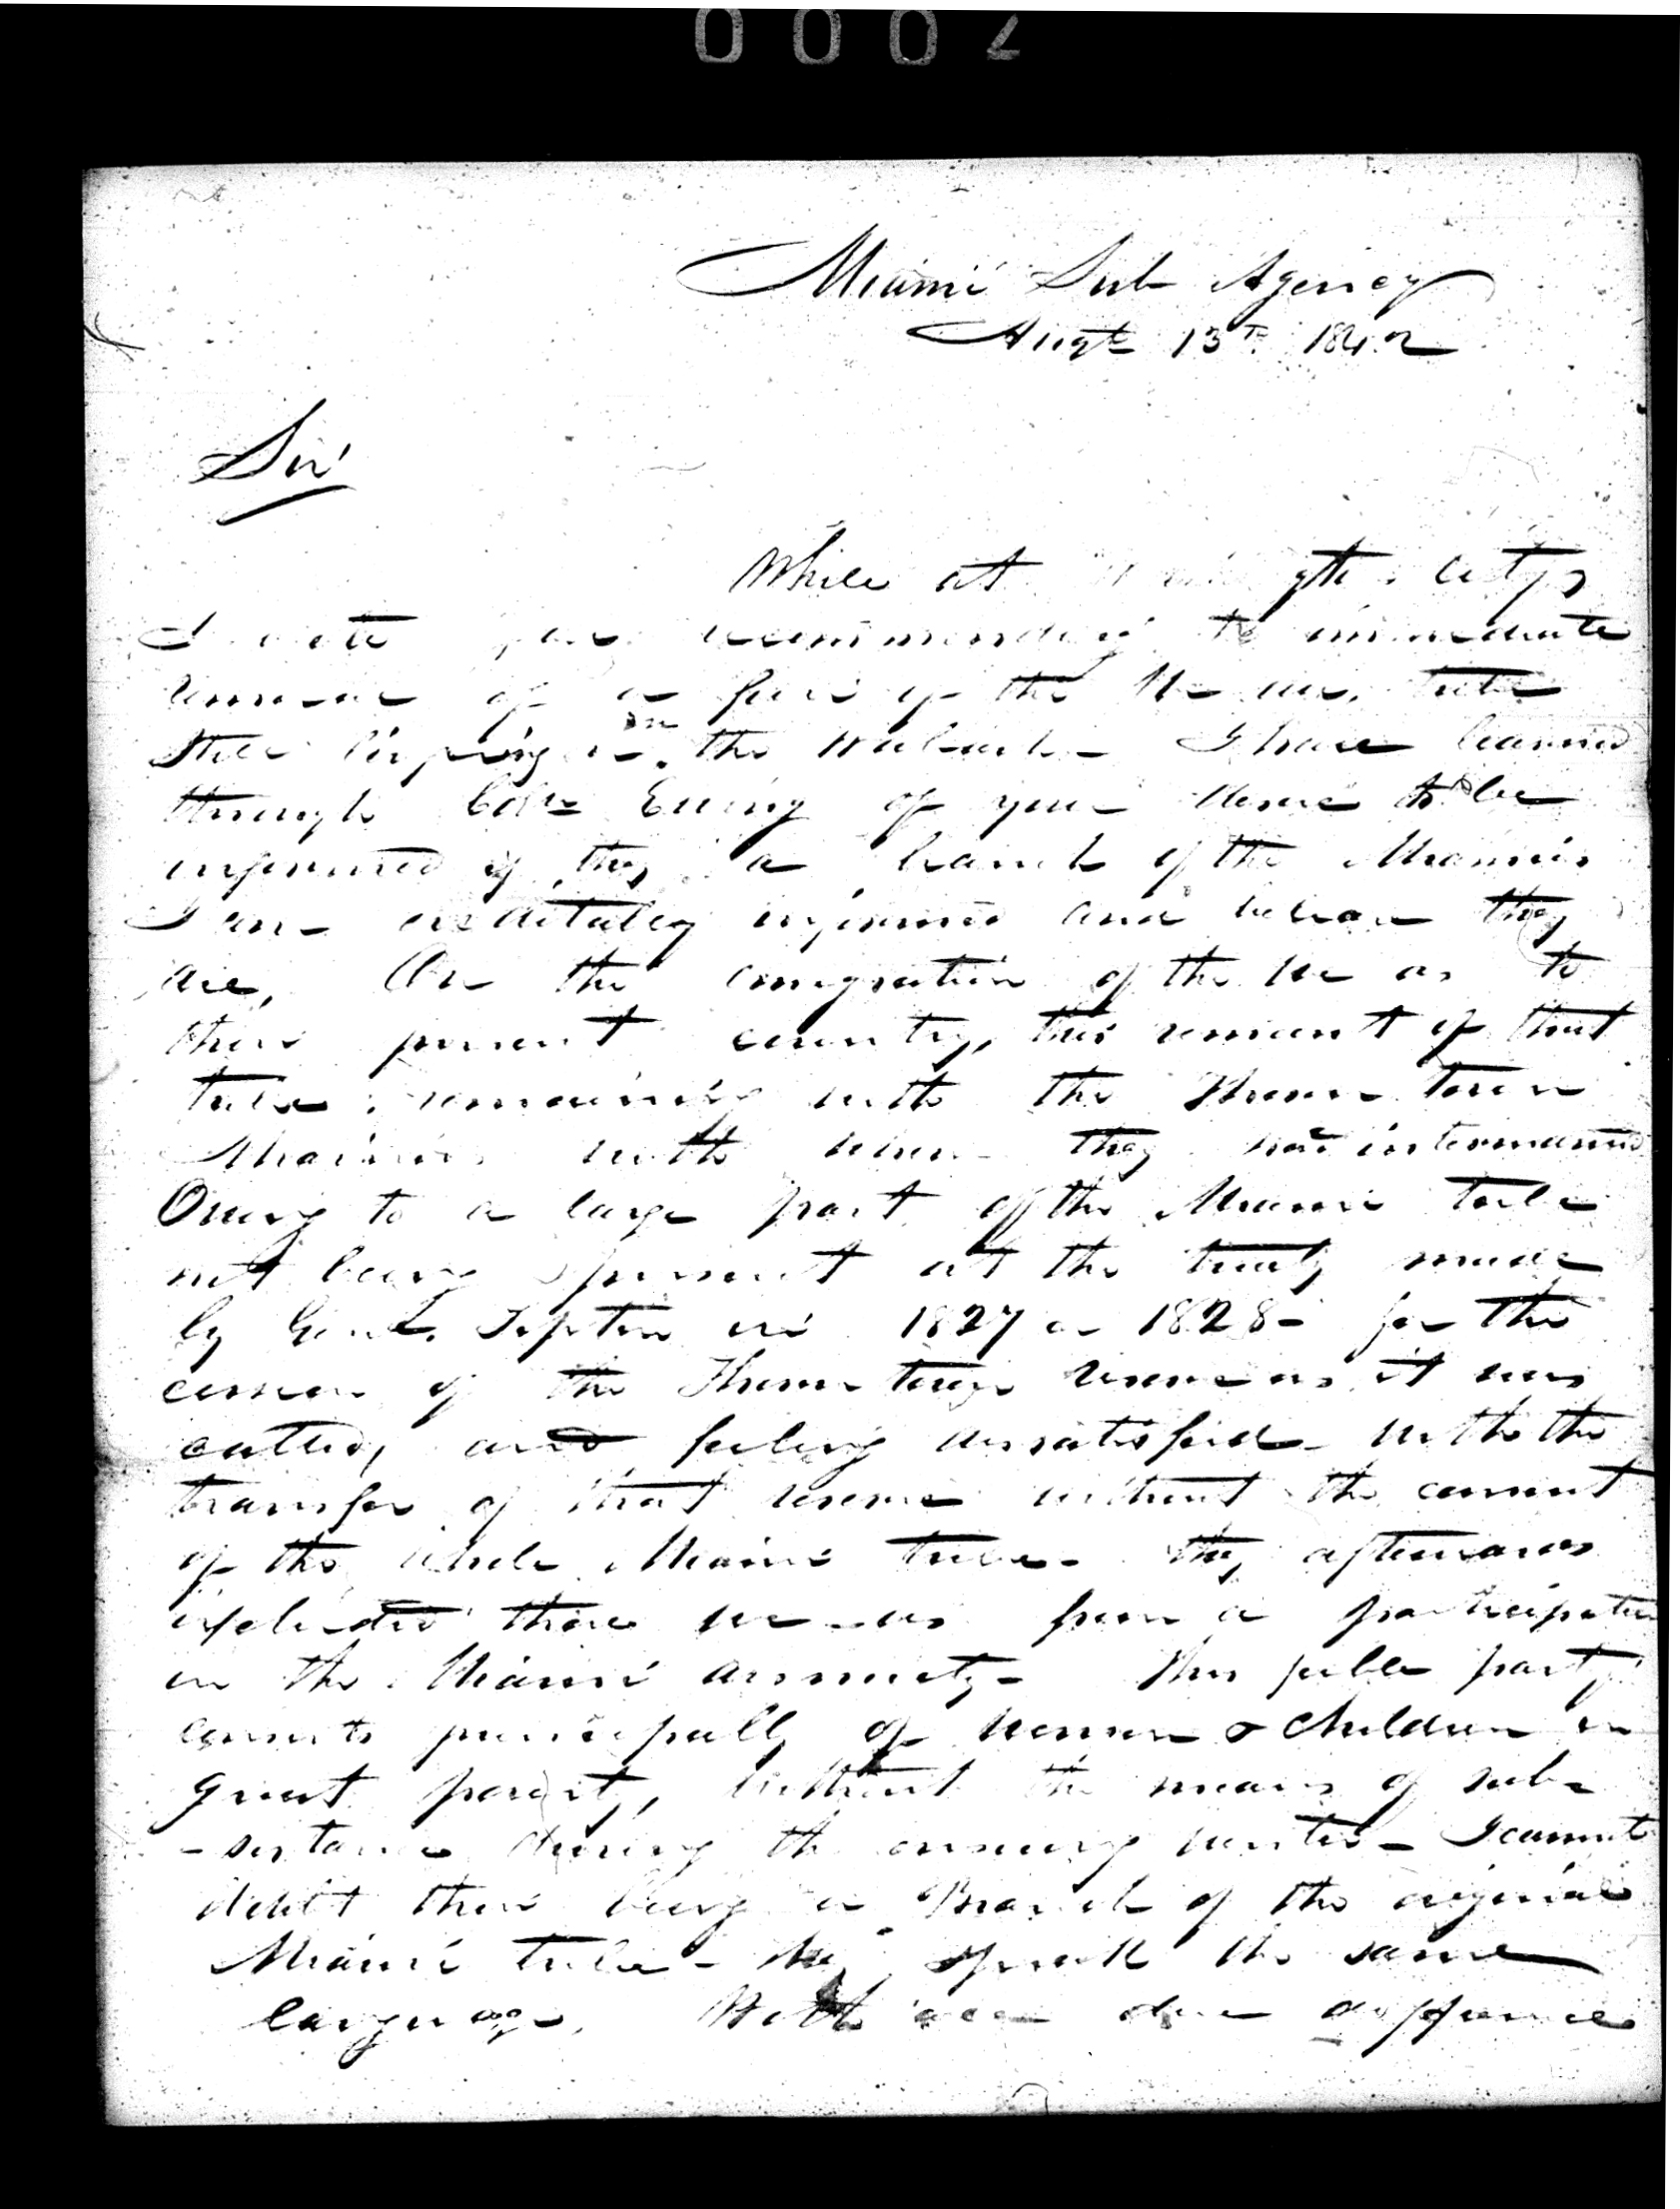 0002
Miami Sub Agency
Augt 13th 1842
Sir
While at city,
I recommending the immediate
removal of a few of the Wea tribe
still lingering on the Wabash - I have learned
through Coln Ewing of your desire to be
informed if they a branch of the Miamies
I am creditably informed and believe they
are, On the emigration of the Weas to
their present country, this remnant of that
tribe remaining with the Thorn town
Miamies with whom they had intermarried
Owing to a large part of the Miami tribe
not being present at the treaty made
by Genl. Tipton in 1827 or 1828 - for the
cession of the Thorn town reserve as it was
called, and feeling dissatisfied with the
transfer of that reserve without the consent
of the whole Miami tribe - they afterwards
these Weas from a participation
in the Miami annuity - This feble party
consists principally of women & children in
great poverty, without the means of sub-
-sistance during the ensuing winter - I cannot
doubt their being a Branch of the original
Miami tribe - they speak the same
language, With due defference